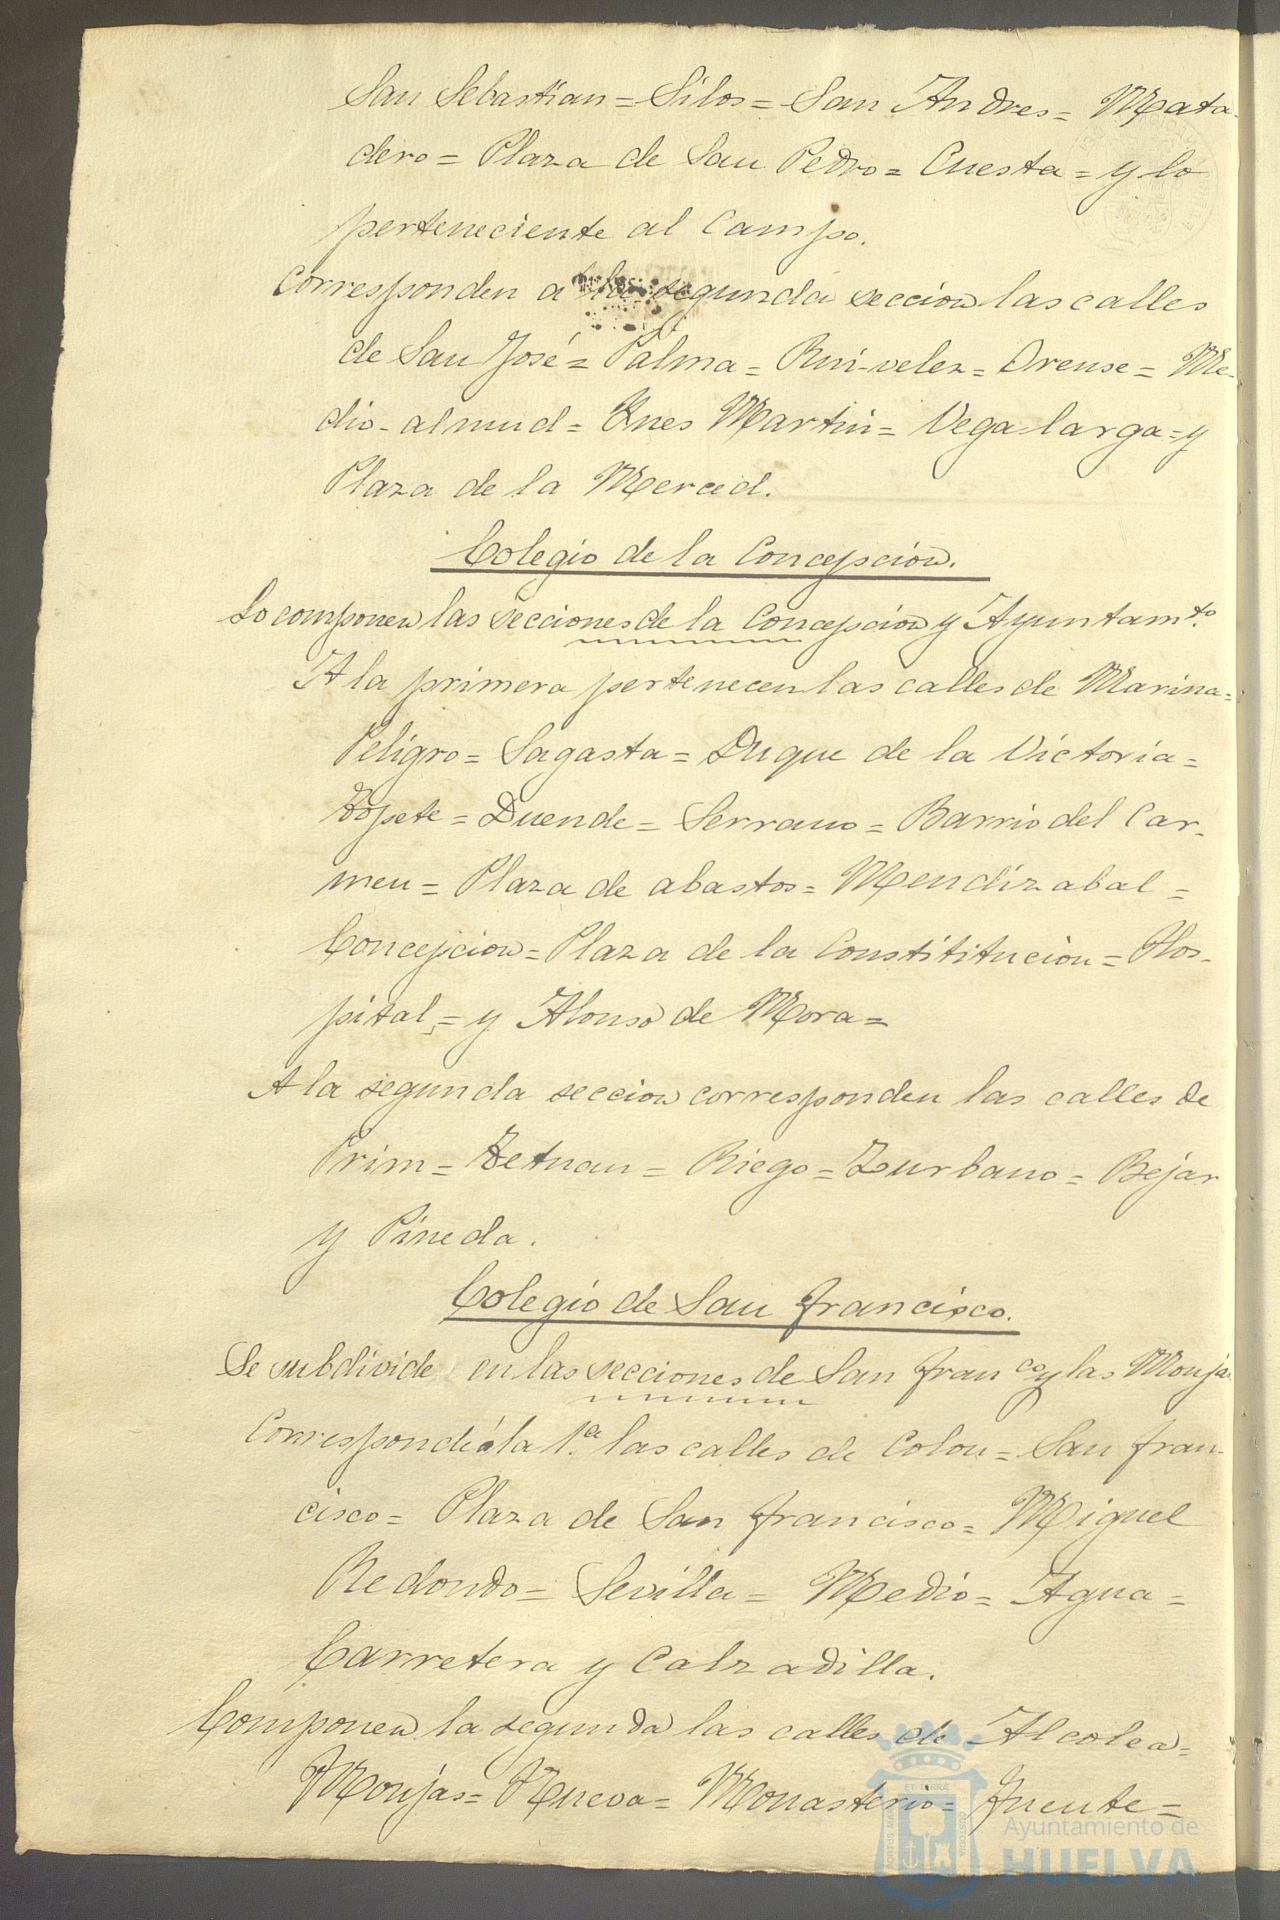 San Sebastian = Silos = San Andres = Mata-
dero = Plaza de San Pedro = Cuesta = y lo
perteneciente al Campo.
Corresponden a la segunda seccion las calles
de San José = Palma = Rui-velez = Orense = Me-
dio-almud = Ynes Martin = Vega larga = y
Plaza de la Merced.
Colegio de la Concepcion.
Lo componen las secciones de la Concepcion y Ayuntamto.
A la primera pertenecen las calles de Marina =
Peligro = Sagasta = Duque de la Victoria =
Topete = Duende = Serrano = Barrio del Car-
men = Plaza de abastos = Mendizabal =
Concepcion = Plaza de la Constititucion = Hos-
pital = y Alonso de Mora =
A la segunda seccion corresponden las calles de
Prim = Tetuan = Riego = Zurbano = Bejar
y Pineda.
Colegio de San francisco.
Se subdivide en las secciones de San franco y las Monjas
Corresponde á la 1.a las calles de Colon = San fran-
cisco = Plaza de San francisco = Miguel
Redondo = Sevilla = Medio = Agua =
Carretera y Calzadilla.
Componen la segunda las calles de Alcolea =
Monjas = Nueva = Monasterio = fuente =
Ayuntamiento de
HUELVA